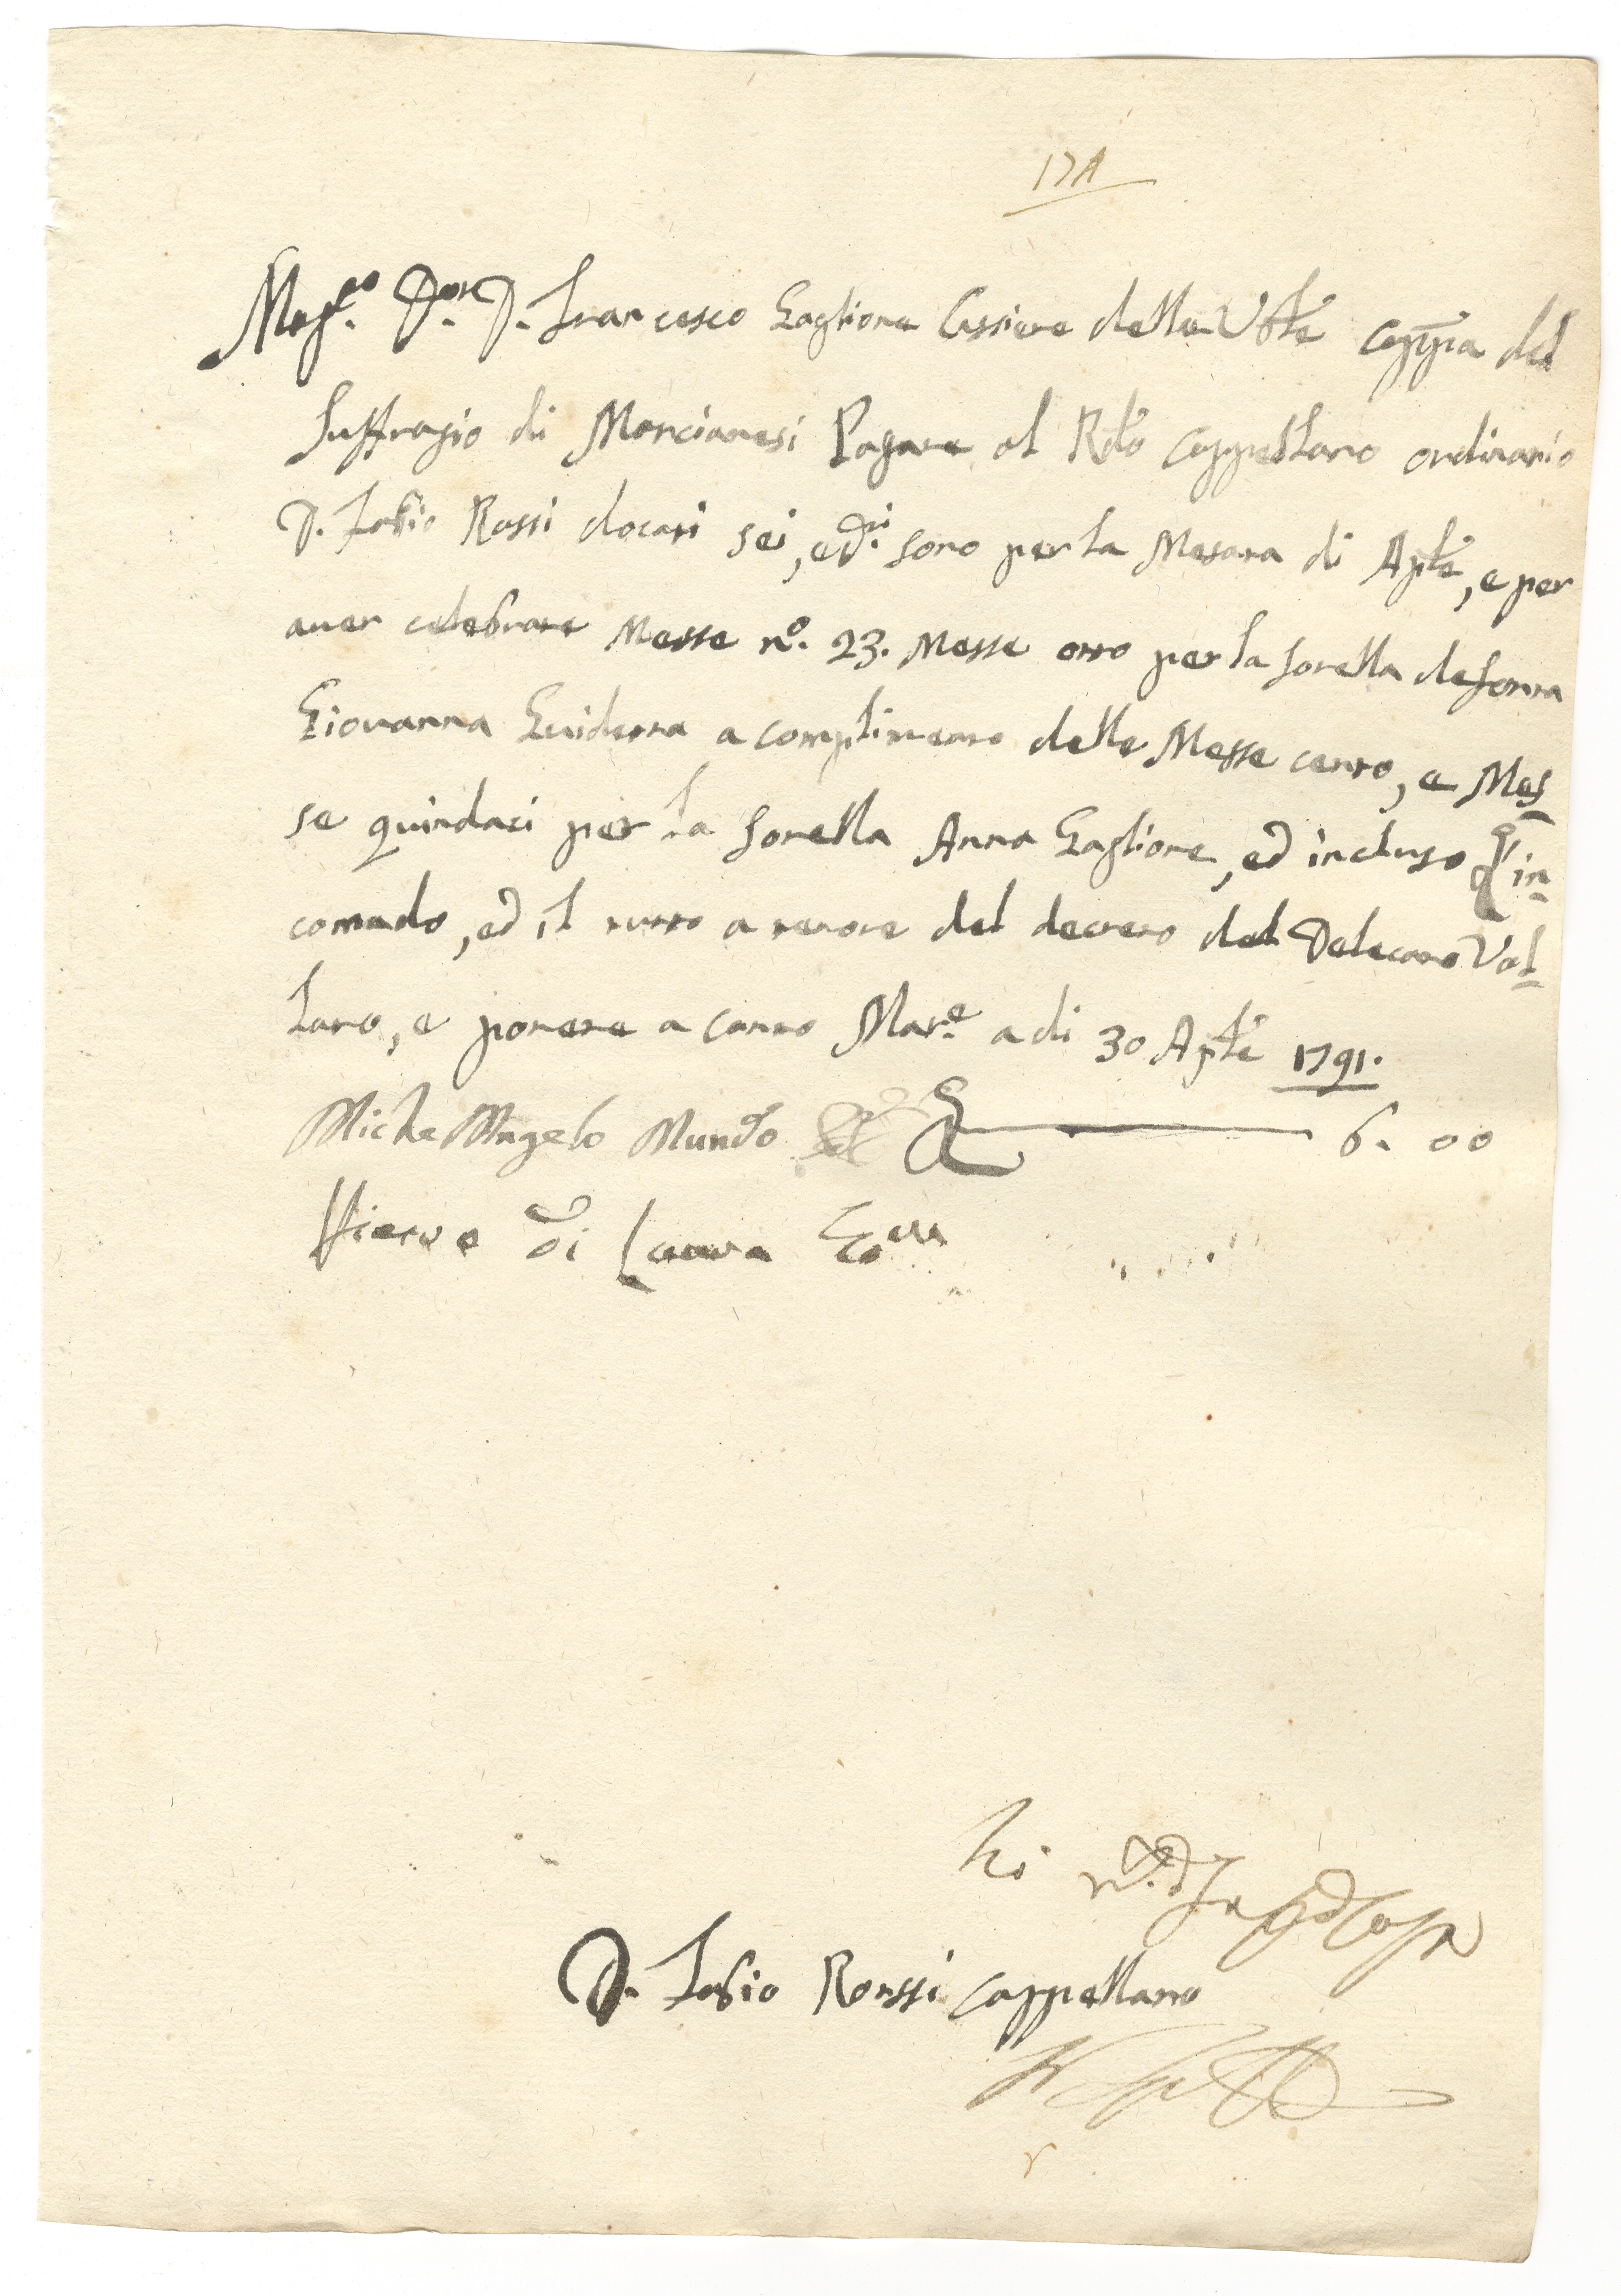 17A
Mag.co D.or D. Francesco Gaglione Cassiere della Vble Cappa del
Suffragio di Marcianesi Pagare al Rdo Cappellano ordinario
D. Fabio Rossi docati sei, e Di. sono per la Mesata di Aple, e per
aver celebrate Messe no. 23. Messe otto per la sorella defonta
Giovanna Guidetta a complimento delle Messe cento, e Mes
se quindaci per la sorella Anna Gaglione, ed incluso in-
comado, ed il tutto a tenore del decreto del Delecato Val-
laro, e ponete a conto Mar.e a di 30 Aple 1791.
Michel'Angelo Mundo 6. 00
di
D. Fabio Rossi Cappellano